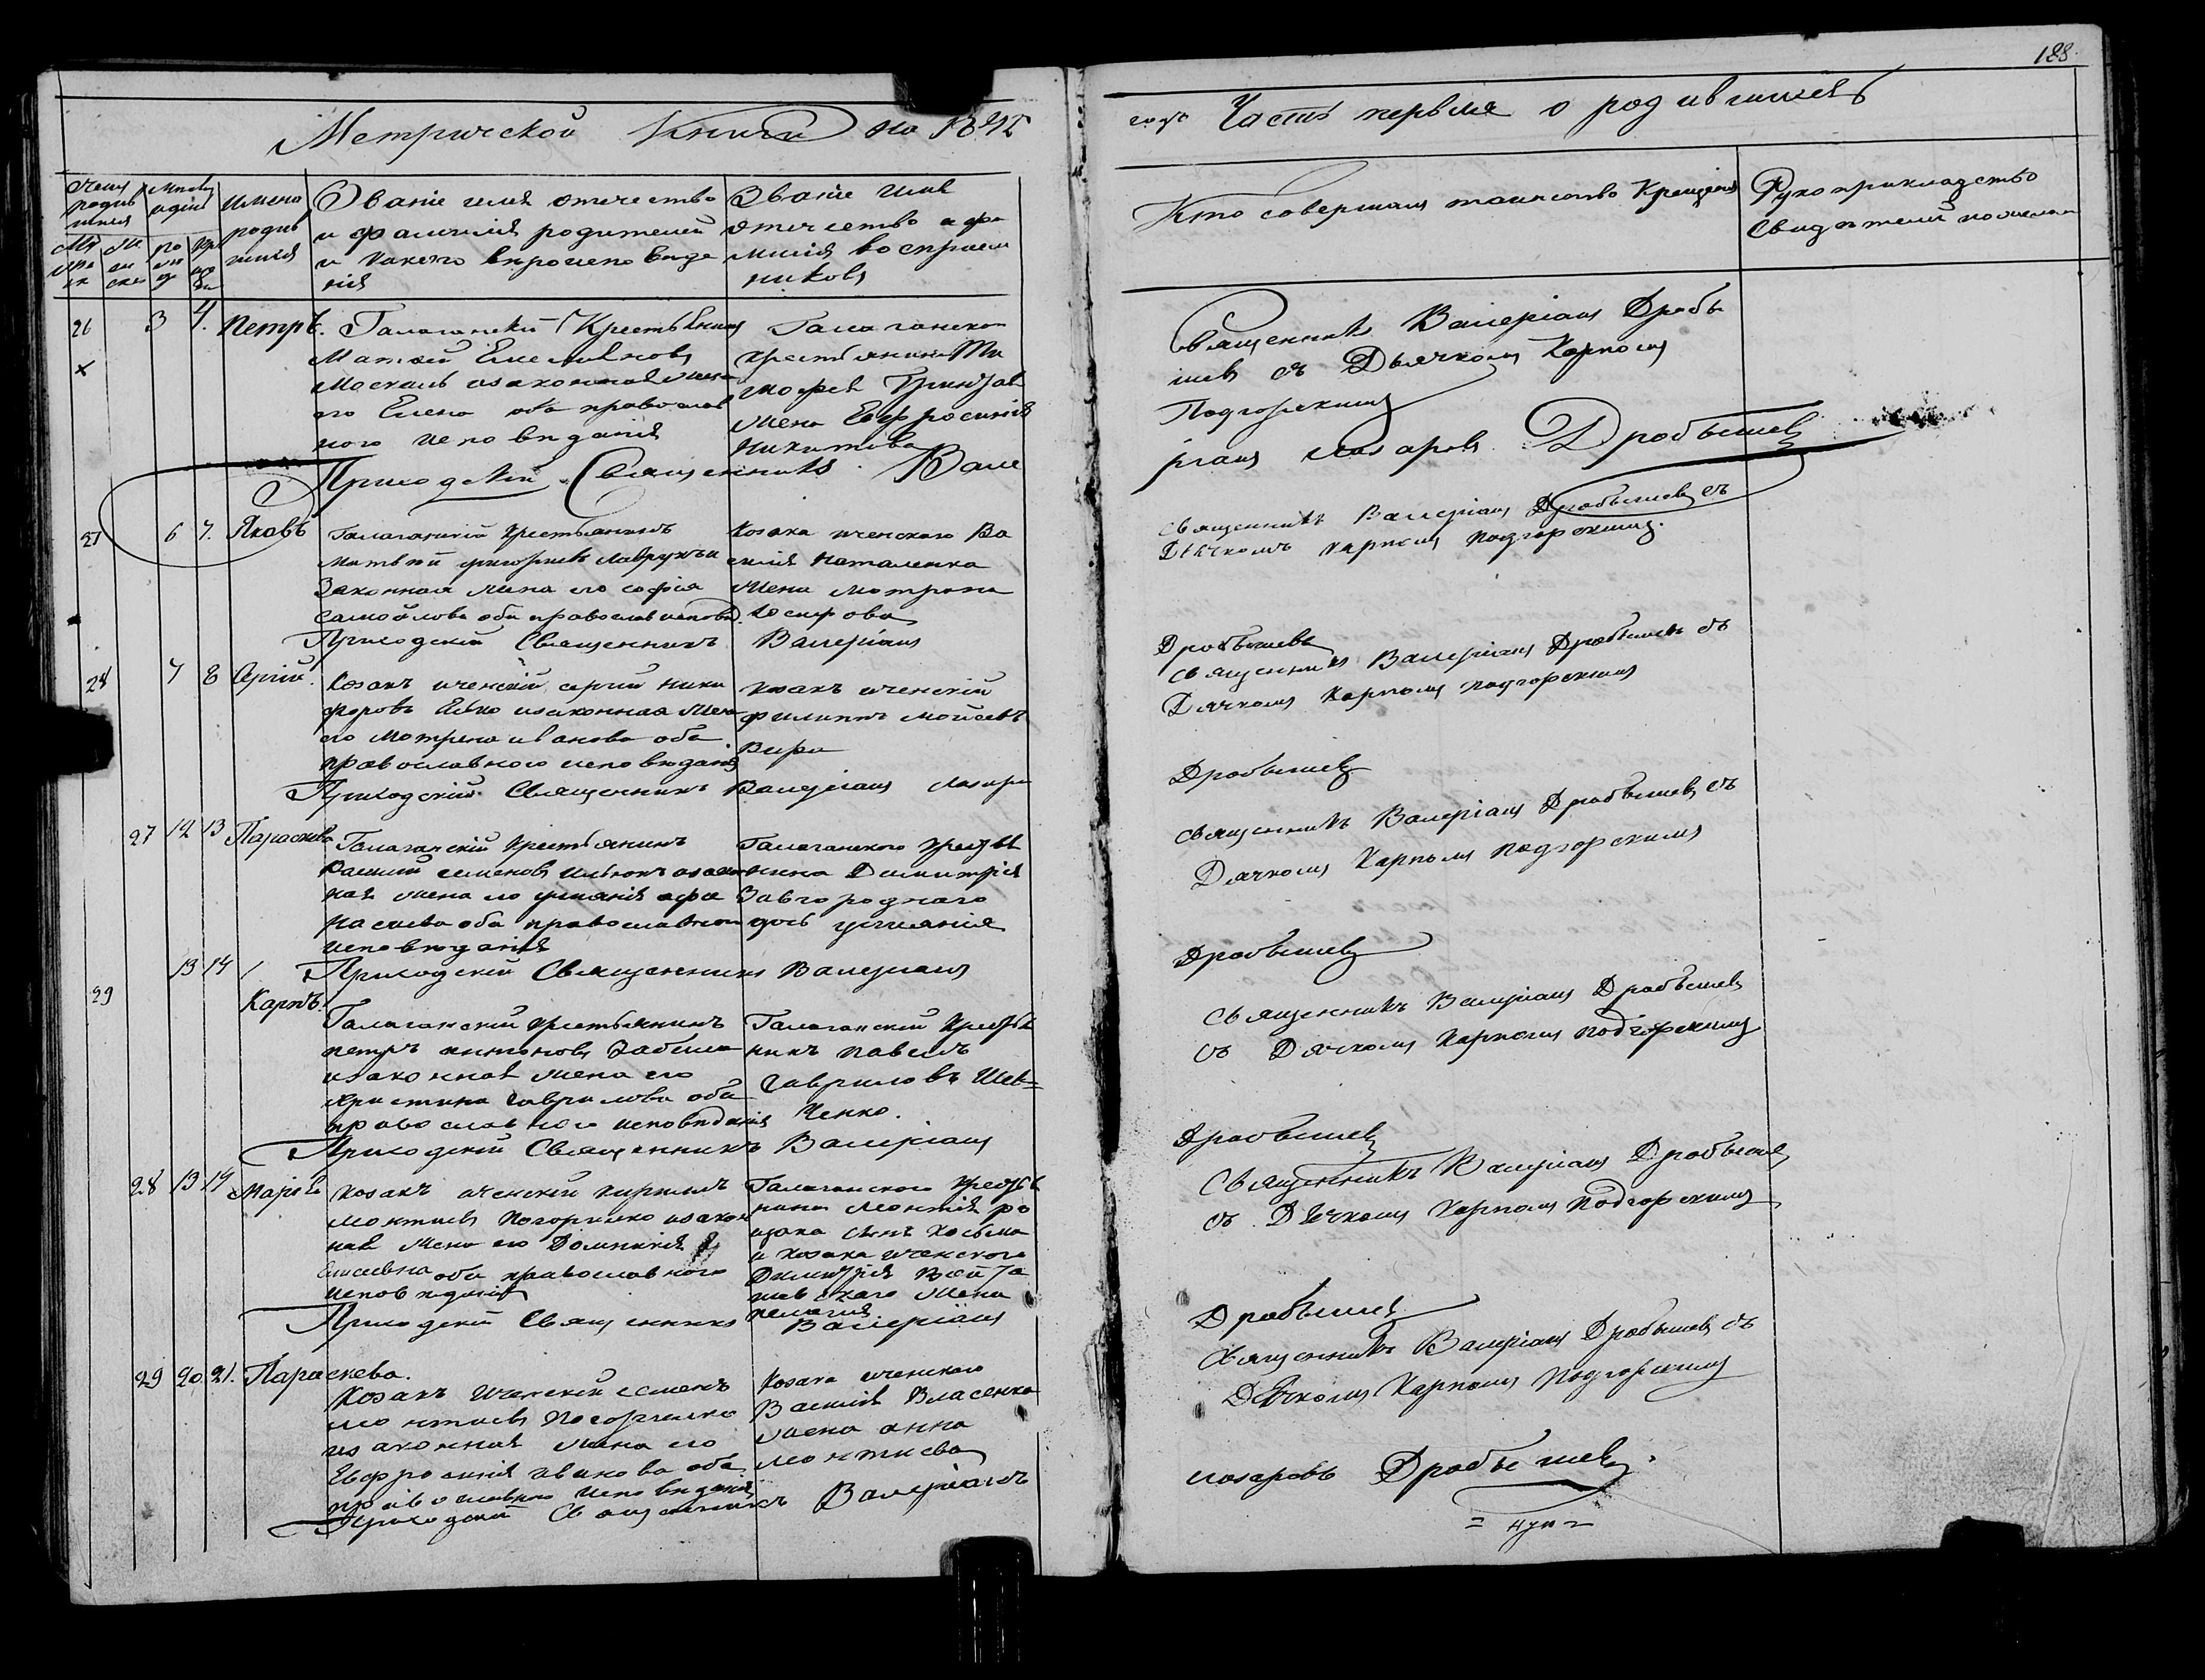 188
Метрической Книги на 1842
году Часть первая о родившихся
Счетъ родившихся
Мужеска
Женска
Месяцъ и день
рожд
крещ
Имена родившихся
Званіе имя отечество
и фамилія родителей
и какого вероисповеда
нія
Званіе имя
отечество и фа
милія воспріем
никовъ
Кто совершалъ таинство Крещенія
Рукоприкладство
Свидетелей по желан
26 3 4. Петръ.
Галаганскій Крестьянинъ
Матвей Емельяновъ
Москаль и законная жена
его Елена оба православ
ного исповеданія
Галаганского
крестьянина Ти
мофея
жена Евфросинія
Никитова
Священникъ Валеріанъ Дробы
шевъ съ Дьячкомъ Карпомъ
Подгорскимъ
Приходскій Священникъ Вале
ріанъ Лазаревъ Дробышевъ
27 6 7. Яковъ
Галаганскій Крестьянинъ
Матвей Григорьевъ
Законная жена его Софія
Самойлова оба православ исповед.
Козака иченского Ва
силія Наталенка
жена Мотрона
Іосифова
Священникъ Валеріанъ Дробышевъ съ
Дьячкомъ Карпомъ Подгорскимъ.
Приходскій Священникъ Валеріанъ
Дробышевъ
28 7 8 Сергій.
Козакъ иченскій Сергій Ники
форовъ и законная жена
его Мотрона Иванова оба
православного исповеданія
Козакъ иченскій
Филиппъ Моисеевъ
Вира
Священникъ Валеріанъ Дробышевъ съ
Дячкомъ Карпомъ Подгорскимъ
Приходскій Священникъ Валеріанъ Лазаре
Дробышевъ
27 12 13 Параскева
Галаганскій Крестьянинъ
Василій Семеновъ и закон
ная жена его Уліянія Афа
насиева оба православного
исповеданія
Галаганского Крестья
нина Димитрія
Завгороднаго
дочь Уліянія
Священникъ Валеріанъ Дробышевъ съ
Дячкомъ Карпомъ Подгорскимъ
Приходскій Священникъ Валеріанъ
Дробышевъ
29 13 14
Карпъ.
Галаганскій Крестьянинъ
Петръ Антоновъ Забела
и законная жена его
Христина Гаврилова оба
православного исповеданія
Галаганскій Крестья
нинъ Павелъ
Гавриловъ Шев=
ченко.
Священникъ Валеріанъ Дробышевъ
съ Дячкомъ Карпомъ Подгорскимъ
Приходскій Священникъ Валеріанъ
Дробышевъ
28 13 14 Марія
Козакъ иченскій Кирилъ
Леонтиевъ Погорилко и закон
ная жена его Домникія
Елисеевна оба православного
исповеданія
Галаганского Крестья
нина Леонтія
сынъ Косьма
и Козака иченского
Димитрія
жена
Пелагия
Священникъ Валеріанъ Дробышевъ
съ Дьячкомъ Карпомъ Подгорскимъ
Приходскій Священникъ Валеріанъ
Дробышевъ
29 20 21. Параскева.
Козакъ Иченскій Семенъ
Леонтиевъ Погорилко
и законная жена его
Евфросинія Иванова оба
православного исповеданія
Козака иченского
Василія Власенка
жена Анна
Леонтиева
Священникъ Валеріанъ Дробышевъ съ
Дьячкомъ Карпомъ Подгорскимъ
Приходскій Священникъ Валеріанъ
Лазаревъ Дробышевъ.